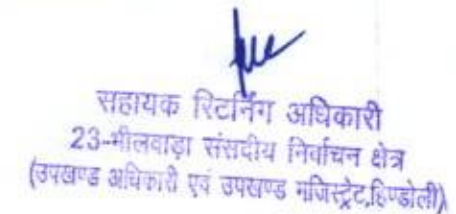 सहायक रिटर्निंग अधिकारी
23-भीलवाड़ा संसदीय निर्वाचन क्षेत्र
(उपखण्ड अधिकारी एवं उपखण्ड मजिस्ट्रेट,हिण्डोली)